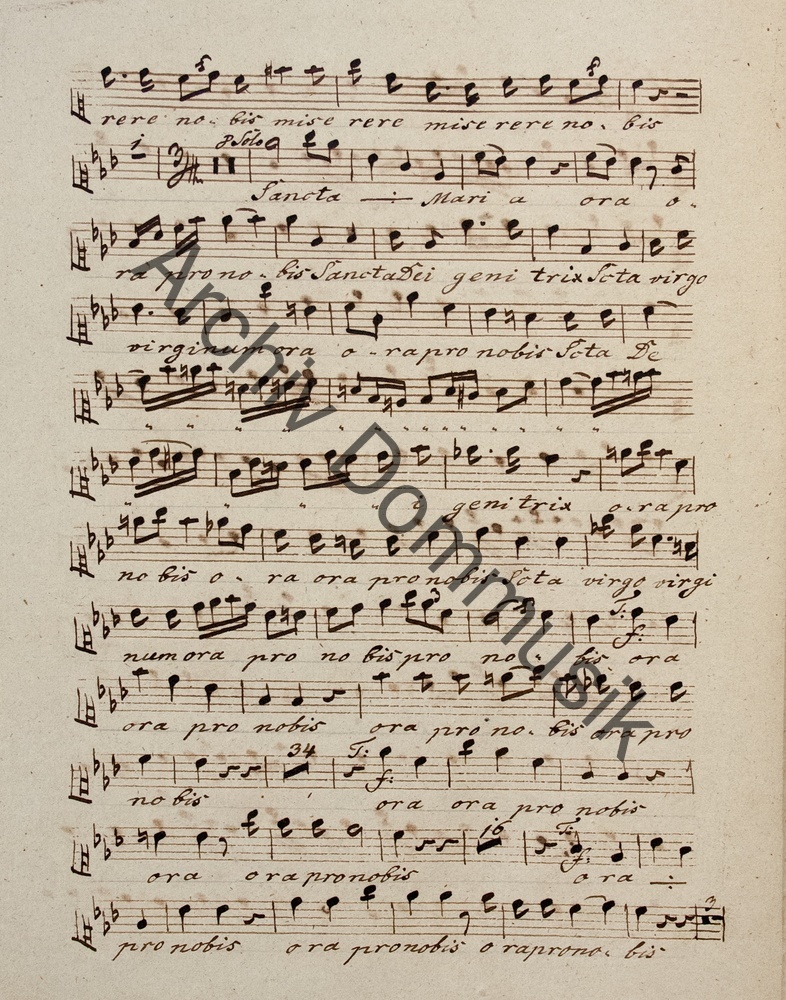 rere no - bis mise rere mise rere no - bis
1 3/4 P Solo
Sancta Maria ora o -
ra pro no - bis Sancta Dei geni trix Scta virgo
virginum ora o - ra pro nobis Scta De
i geni trix o - ra pro
no bis o - ra ora pro nobis Scta virgo virgi
3 3 T: f:
num ora pro no bis pro no - bis ora
ora pro nobis ora pro no - bis ora pro
34 T: f:
no bis ora ora pro nobis
16 T: f:
ora ora pro nobis ora
3
pro nobis ora pro nobis o ra pro no - bis
Archiv Dommusik